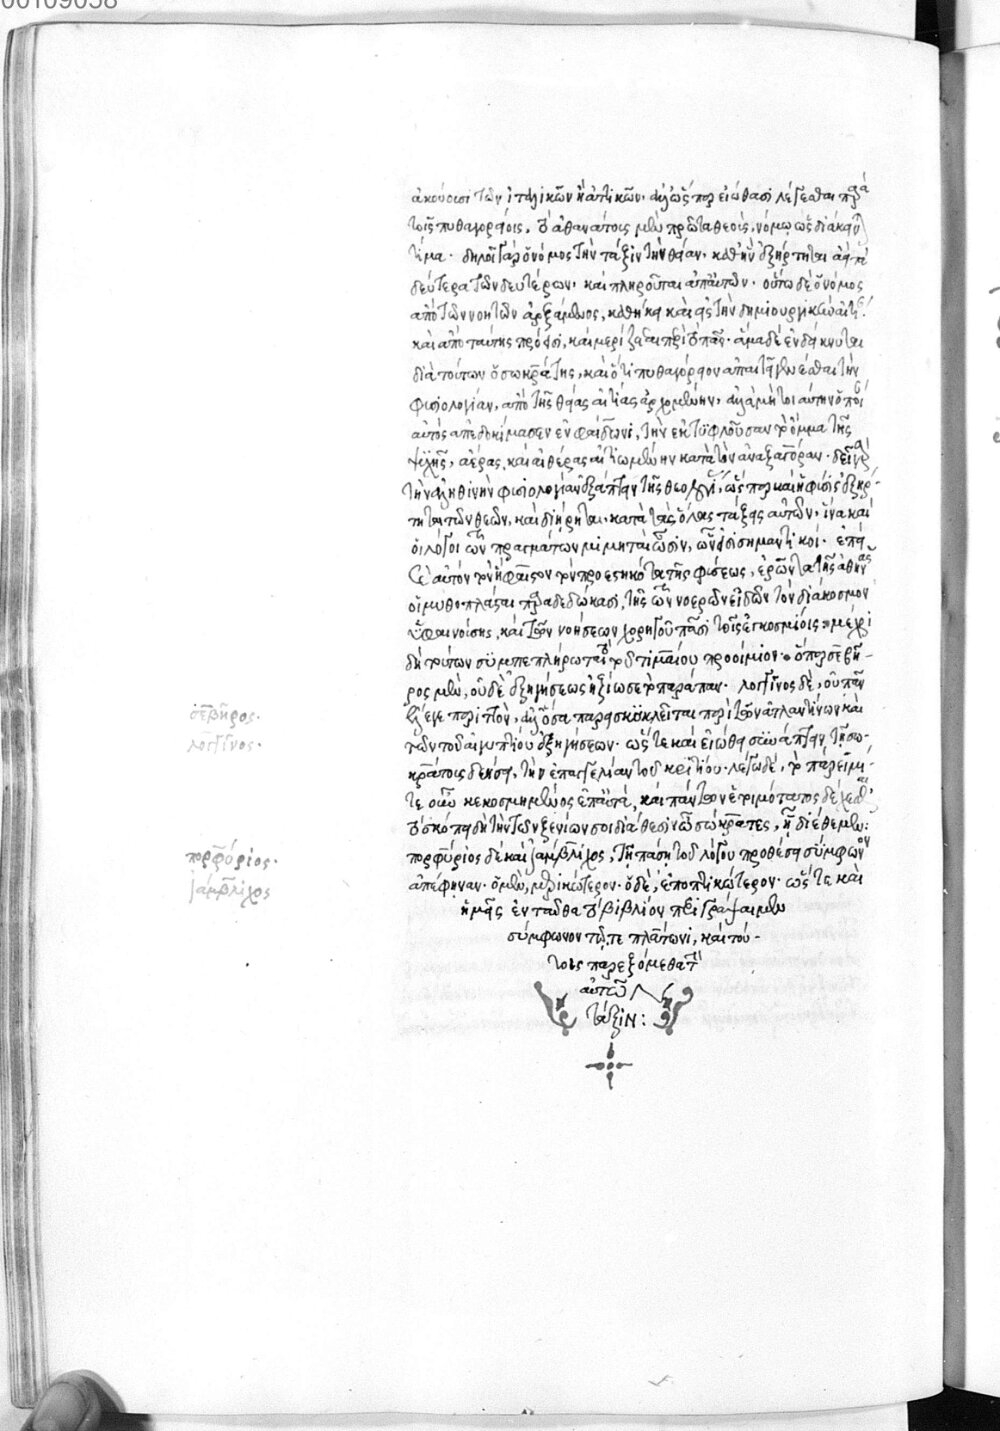 00109058
ἀκούουσι τῶν ἰταλικῶν ἢ ἀττικῶν· ἀλλ' ὥσπερ εἰώθασι λέγεσθαι παρὰ
τοῖς πυθαγορείοις, τὸ ἀθανάτοις μὲν πρῶτα θεοὺς, νόμῳ ὡς διάκειν\τ/
τίμα· δηλοῖ γὰρ ὁ νόμος τὴν τάξιν τὴν θείαν· καθ' ἣν ἐξήρτηται ἀεὶ τὰ
δεύτερα τῶν δευτέρων· καὶ πληροῦται ἀπ' αὐτῶν· οὕτω δὲ ὁ νόμος
ἀπὸ τῶν νοητῶν ἀρξάμενος, καθήκει καὶ εἰς τὴν δημιουργικὴν αἰτί
καὶ ἀπὸ ταύτης πρόεισι, καὶ μερίζεται περὶ τὸ πᾶν· ἅμα δὲ ἐνδείκνυται
διὰ τούτων ὁ σωκράτης, καὶ ὅτι πυθαγόρειον ἀπαιτεῖ γίνεσθαι τὴν
φυσιολογίαν, ἀπὸ τῆς θείας αἰτίας ἀρχομένην, ἀλλὰ μή τοι αὐτὴν ὁποί
αὐτὸς ἀπεδοκίμασεν ἐν φαίδωνι, τὴν ἐκτυφλοῦσαν τὸ ὄμμα τῆς
ψυχῆς, ἀέρας καὶ αἰθέρας αἰτιωμένην κατὰ τὸν ἀναξαγόραν· δεῖ γὰρ
τὴν ἀληθινὴν φυσιολογίαν ἐξάπτειν τῆς θεολογί, ὥσπερ καὶ ἡ φύσις ἐξήρ-
τηται τῶν θεῶν, καὶ διῄρηται κατὰ τὰς ὅλας τάξεις αὐτῶν, ἵνα καὶ
οἱ λόγοι τῶν πραγμάτων μιμηταὶ ὦσιν, ὧν εἰσὶ σημαντικοί· ἐπεὶ
αὐτὸν τὸν ἥφαιστον τὸν προεστηκότα τῆς φύσεως, ἐρῶντα τῆς ἀθηνᾶς
οἱ μυθοπλάσται παραδεδώκασι, τῆς τῶν νοερῶν εἰδῶν τὸν διάκοσμον
ὑφαινούσης, καὶ τῶν νοήσεων χορηγοῦ πᾶσι τοῖς ἐγκοσμίοις· μέχρι
δὴ τούτων συμπεπλήρωται τὸ τοῦ τιμαίου προοίμιον· ὅπερ σεβῆ-
ρος μὲν, οὐδὲ ἐξηγήσεως ἠξίωσε τὸ παράπαν· λογγῖνος δὲ, οὐ πᾶν
ἔλεγε περιττὸν, ἀλλ' ὅσα παρεισκυκλεῖται περὶ τῶν ἀτλαντίνων καὶ
τῶν τοῦ αἰγυπτίου ἐξηγήσεων· ὥστε καὶ εἰώθει συνάπτειν τῇ σω-
κράτους δεήσει, τὴν ἐπαγγελίαν τοῦ κριτίου· λέγω δὲ, τὸ πάρειμί
τε οὖν κεκοσμημένος ἐπ' αὐτὰ, καὶ πάντων ἑτοιμότατος δέχεσθ
τὸ σκόπει δὴ τὴν τῶν ξενίων σοι διάθεσιν ὦ σώκρατες, ᾗ διέθεμεν:
πορφύριος δὲ καὶ ἰάμβλιχος, τῇ πάσῃ τοῦ λόγου προθέσει σύμφωνον
ἀπέφηναν· ὁ μὲν, μερικώτερον· ὁ δὲ, ἐποπτικώτερον· ὥστε καὶ
ἡμεῖς ἐνταῦθα τὸ βιβλίον περιγράψαιμεν
σύμφωνον τῷ τε πλάτωνι, καὶ τού-
τοις παρεξόμεθα τ
αὐτῶν
τάξιν:
σεβῆρος·
λογγῖνος·
πορφύριος·
ἰάμβλιχος